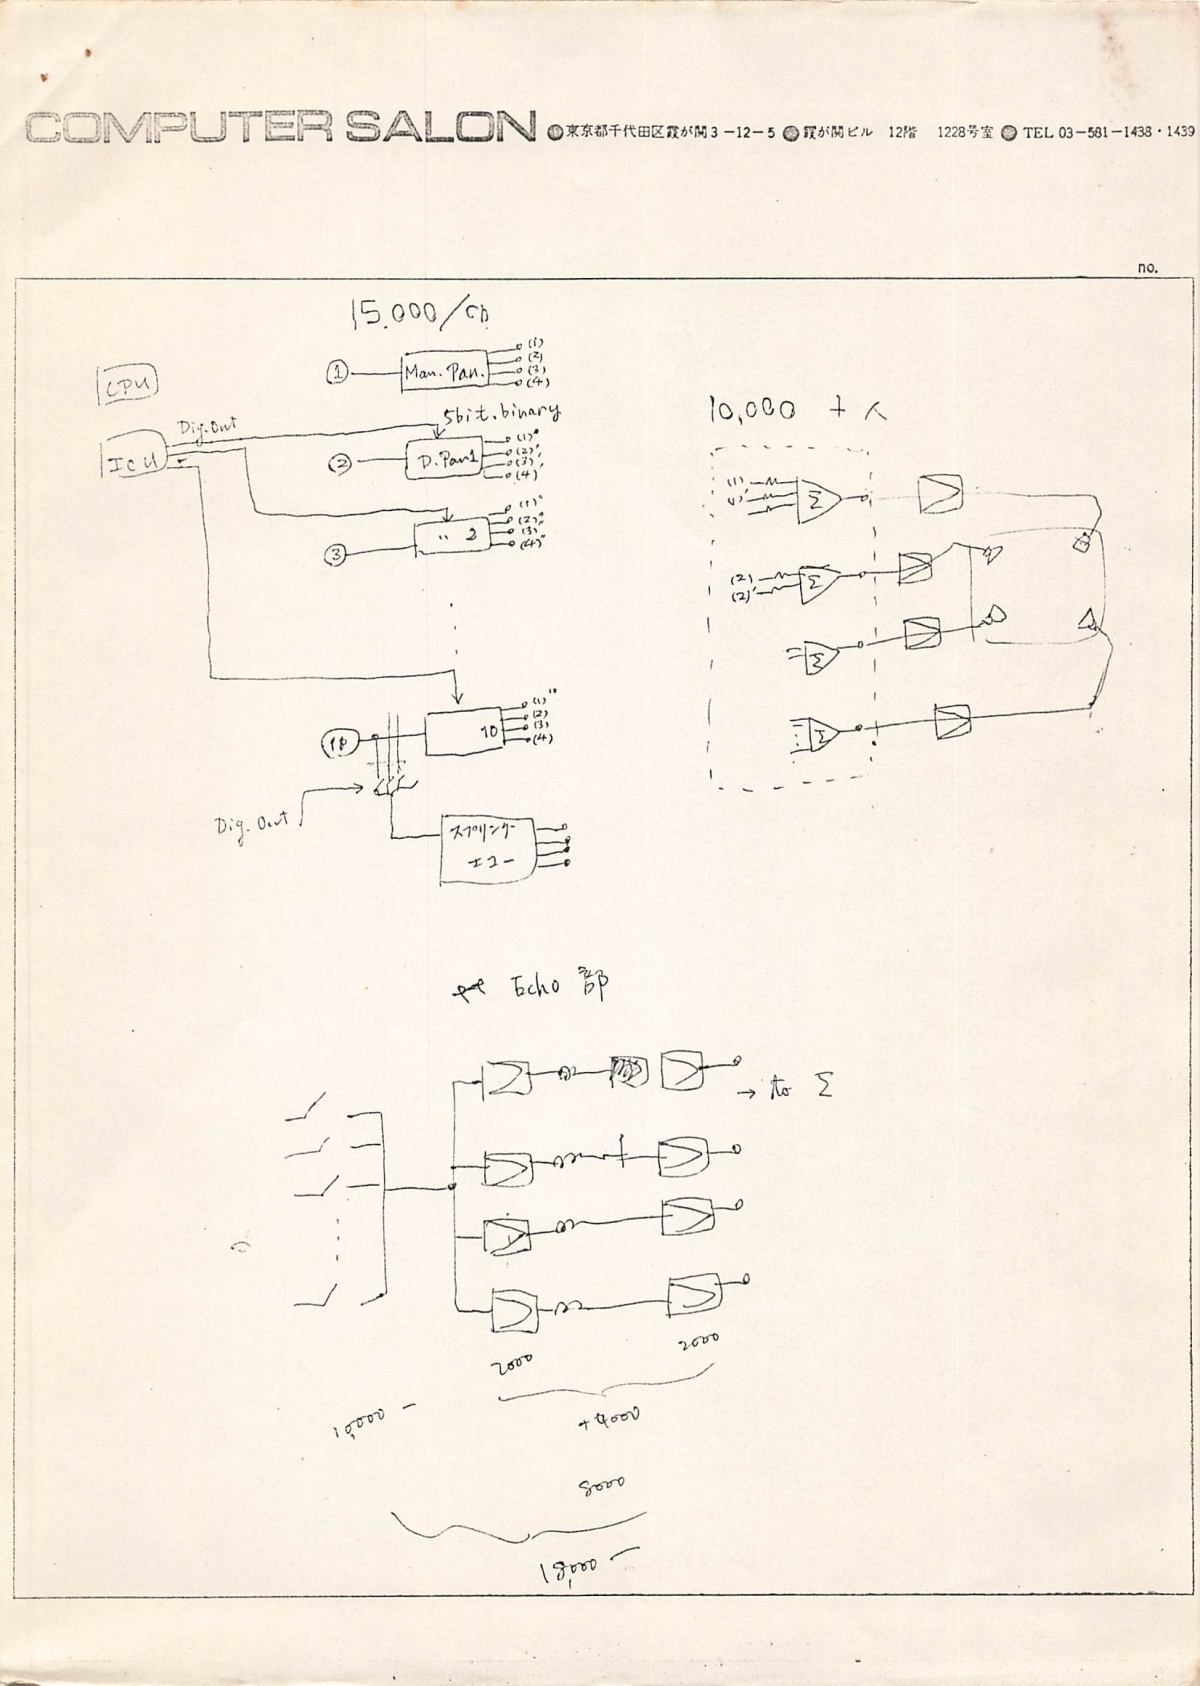 COMPUTER SALON ●東京都千代田区霞が関3-12-5 ●霞が関ビル 12階 1228号室 ● TEL 03-581-1438・1439
no.
15.000/ch
1 Man. Pan. (1) (2) (3) (4)
CPU
Dig.Out
5bit.binary
ICU
2 D.Pan1 (1)' (2)' (3)' (4)
3 〃 2 (1)" (2)" (3)" (4)"
10 10 (1)10 (2) (3) (4)
Dig. Out
スプリンクー
エコー
10,000
(1) Σ
(2) Σ
(2)'
Σ
Σ
** Echo 部
→ to Σ
2000 2000
10,000 -
+4000
8000
18,000 -